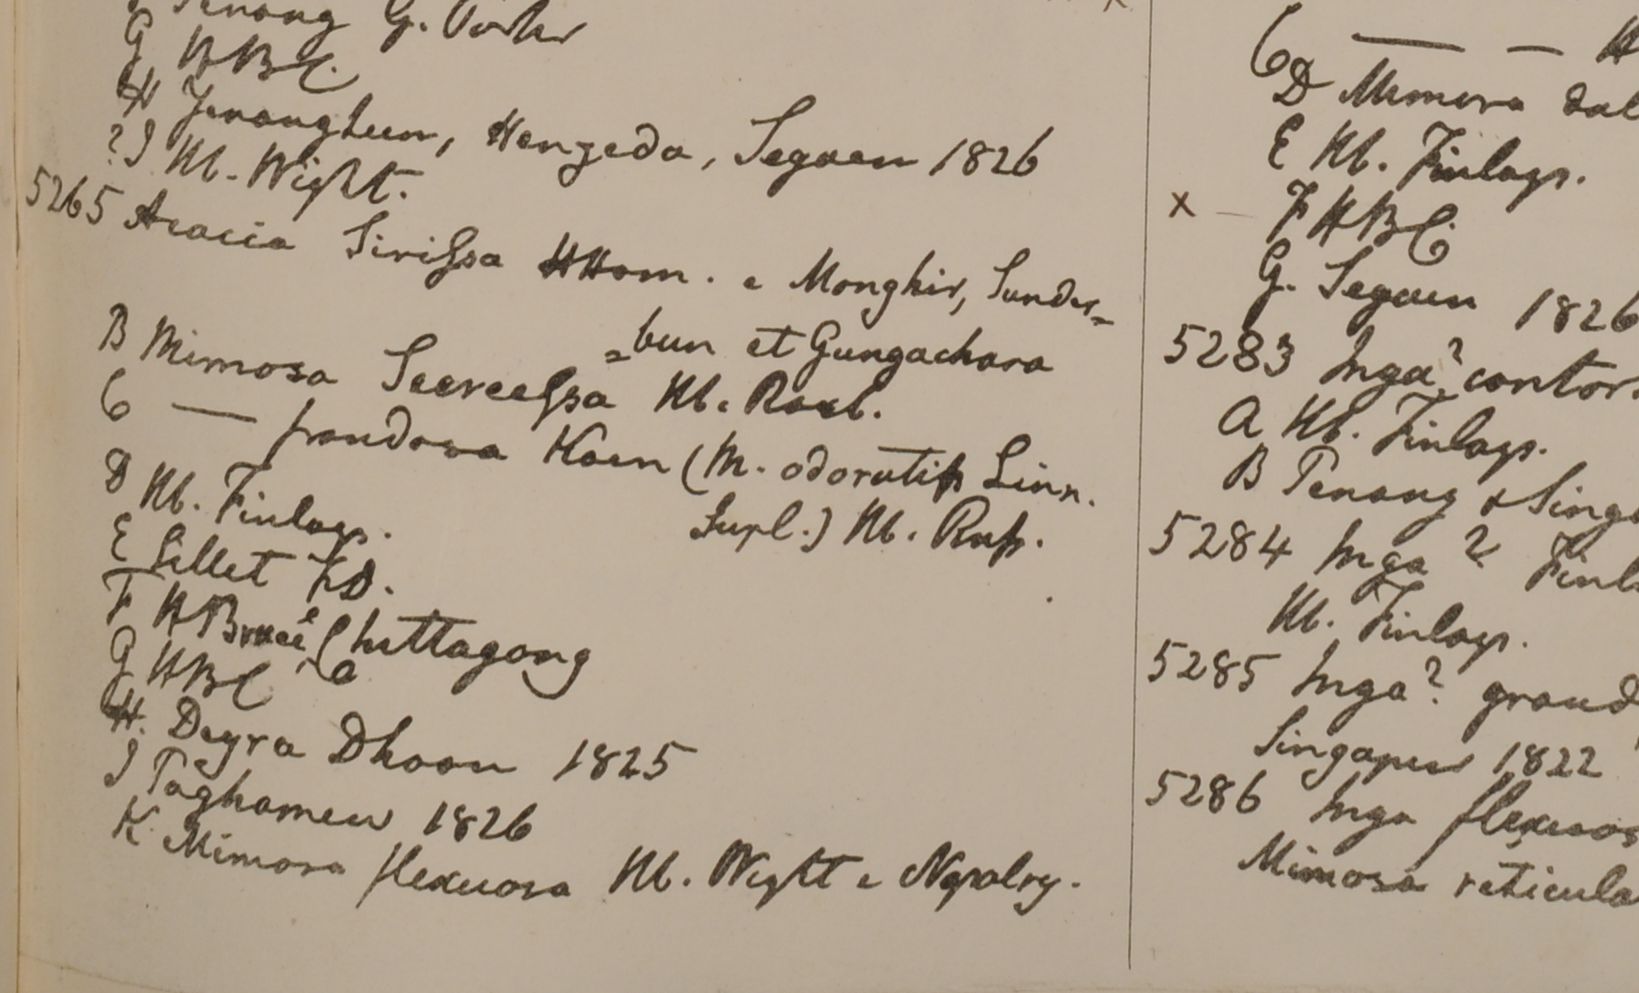 Penang G.
G HBC.
H Jenanghuen, Henzeda, Segaen 1826
?J Hb. Wight.
5265 Acacia Sirissa HHam. e Monghir, Sunder-
=bun et Gungachora
B Mimosa Seereessa Hb. Roxb.
C — frondosa Koen (M. odoratiss Linn.
Supl.) Hb. Russ.
D Hb. Finlays.
E Sillet FD.
F HBrucei e Chittagong
G HBC
H. Deyra Dhoon 1825
J Taghamew 1826
K Mimosa flexuosa Hb. Wight e Nepaly.
6 — — H
D Mimosa dul
E Hb. Finlays.
x — F HBC.
G. Segaen 1826
5283 Inga? contor
A Hb. Finlays.
B Penang & Singa
5284 Inga? Finl
Hb. Finlays.
5285 Inga? grand
Singapur 1822
5286 Inga flexuos
Mimosa reticula